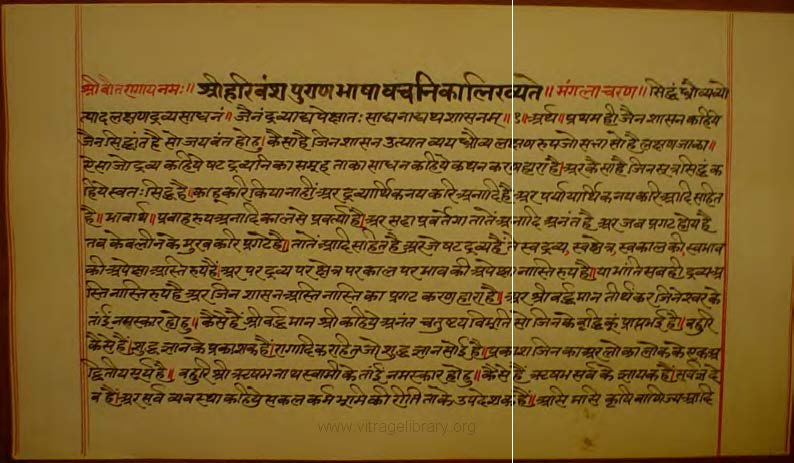 श्रीवीतरागाय नमः॥ श्रीहरिवंशपुराण भाषा वचनिका लिख्यते॥ मंगलाचरण॥ सिद्धं ध्रौव्यव्यो
त्पादलक्षणद्रव्यसाधनं॥ जैनं द्रव्याद्यपेक्षातः साद्यनाद्यथ शासनम्॥१॥ अर्थ॥ प्रथम ही जैन शासन कहिये
जैनसिद्धांत है सो जयवंत होहु। कैसा है जिनशासन उत्पात व्यय ध्रौव्य लक्षण रूप जो सत्ता सो है लक्षण जाका।
ऐसा जो द्रव्य कहिये षट द्रव्यनिका समूह ताका साधन कहिये कथन करणहारा है। अर कैसा है जिनसूत्र सिद्धं क
हिये स्वतः सिद्ध है। काहू करि किया नाहीं अर द्रव्यार्थिकनय करि अनादि है अर पर्यायार्थिकनय करि आदि सहित
है॥ भावार्थ॥ प्रवाहरूप अनादि काल से प्रवर्त्या है। अर सदा प्रवर्तेगा तातें अनादि अनंत है अर जब प्रगट होय है
तब केवलीन के मुख करि प्रगटे है। तातें आदि सहित है अर जे षट द्रव्य हैं ते स्वद्रव्य, स्वक्षेत्र, स्वकाल की, स्वभाव
की अपेक्षा अस्तिरूप हैं। अर परद्रव्य परक्षेत्र परकाल परभाव की अपेक्षा नास्तिरूप है॥ या भांति सब ही द्रव्य अ
स्ति नास्तिरूप है अर जिन शासन अस्ति नास्ति का प्रगट करणहारा है। अर श्री वर्द्धमान तीर्थंकर जिनेश्वर के
तांई नमस्कार होहु। कैसे हैं श्री वर्द्धमान श्री कहिये अनंत चतुष्टय विभूति सो जिनके वृद्धि कूं प्राप्त भई है॥ बहुरि
कैसे हैं। शुद्ध ज्ञान के प्रकाशक हैं। रागादिक रहित जो शुद्ध ज्ञान सोई है। प्रकाश जिनका अर लोकालोक के एक अ
द्वितीय सूर्य हैं॥ बहुरि श्री ऋषभनाथ स्वामी के तांई नमस्कार होहु॥ कैसे हैं ऋषभ सर्व के ज्ञायक हैं। सर्वज्ञ दे
व हैं। अर सर्व व्यवस्था कहिये सकल कर्मभूमि की रीति ताके उपदेशक हैं॥ असि मसि कृषि वाणिज्य आदि
www.vitragelibrary.org